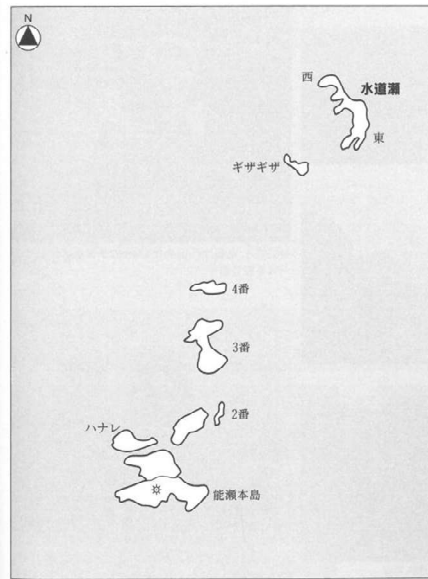 N
西
水道瀬
東
ギザギザ
4番
3番
2番
ハナレ
能瀬本島